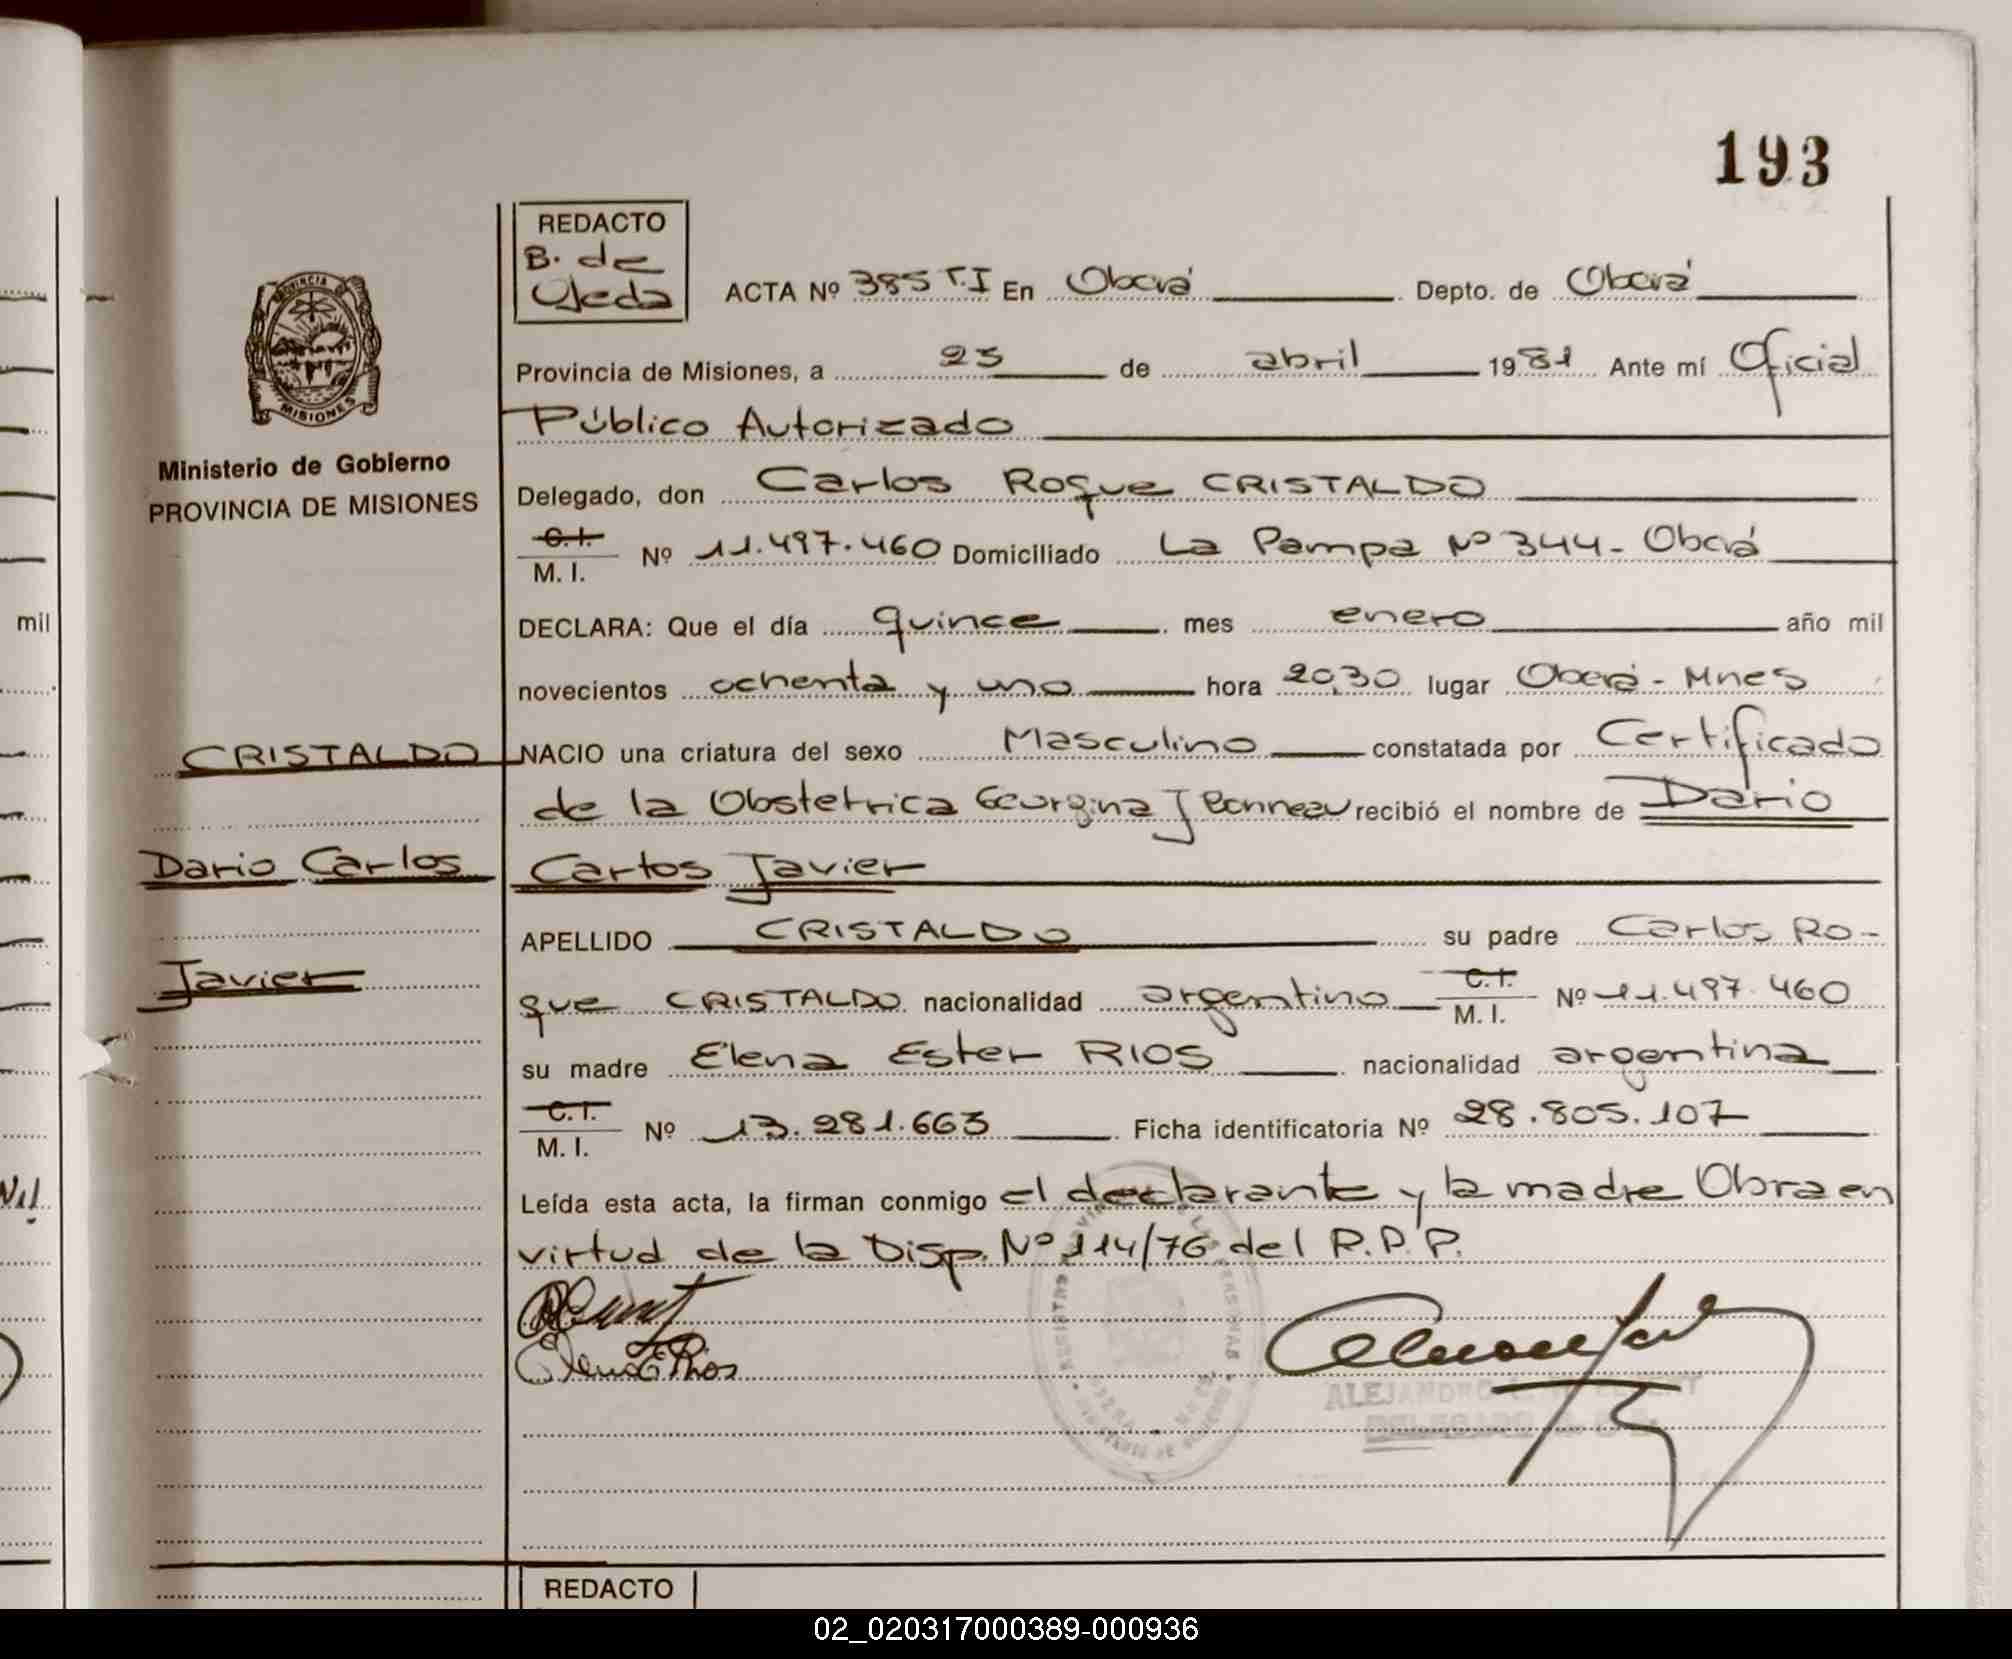 193
REDACTO
B. de
Ojeda
ACTA Nº 385 T.I En Oberá Depto. de Oberá
Provincia de Misiones, a 23 de abril 1981 Ante mí Oficial
Público Autorizado
Delegado, don Carlos Roque CRISTALDO
C.I.
M. I. Nº 11.497.460 Domiciliado La Pampa Nº 344- Oberá
DECLARA: Que el día quince mes enero año mil
novecientos ochenta y uno hora 20,30 lugar Oberá - Mnes
NACIO una criatura del sexo Masculino constatada por Certificado
de la Obstetrica Georgina J Bonneau recibió el nombre de Dario
Carlos Javier
APELLIDO CRISTALDO su padre Carlos Ro-
que CRISTALDO nacionalidad argentino C.I. M. I. Nº 11.497.460
su madre Elena Ester RIOS nacionalidad argentina
C.I.
M. I. Nº 13.281.663 Ficha identificatoria Nº 28.805.107
Leída esta acta, la firman conmigo el declarante y la madre Obra en
virtud de la Disp. Nº 114/76 del R.P.P.
Elena E Rios
PROVINCIA DE
MISIONES
Ministerio de Gobierno
PROVINCIA DE MISIONES
CRISTALDO
Dario Carlos
Javier
mil
REDACTO
02_020317000389-000936